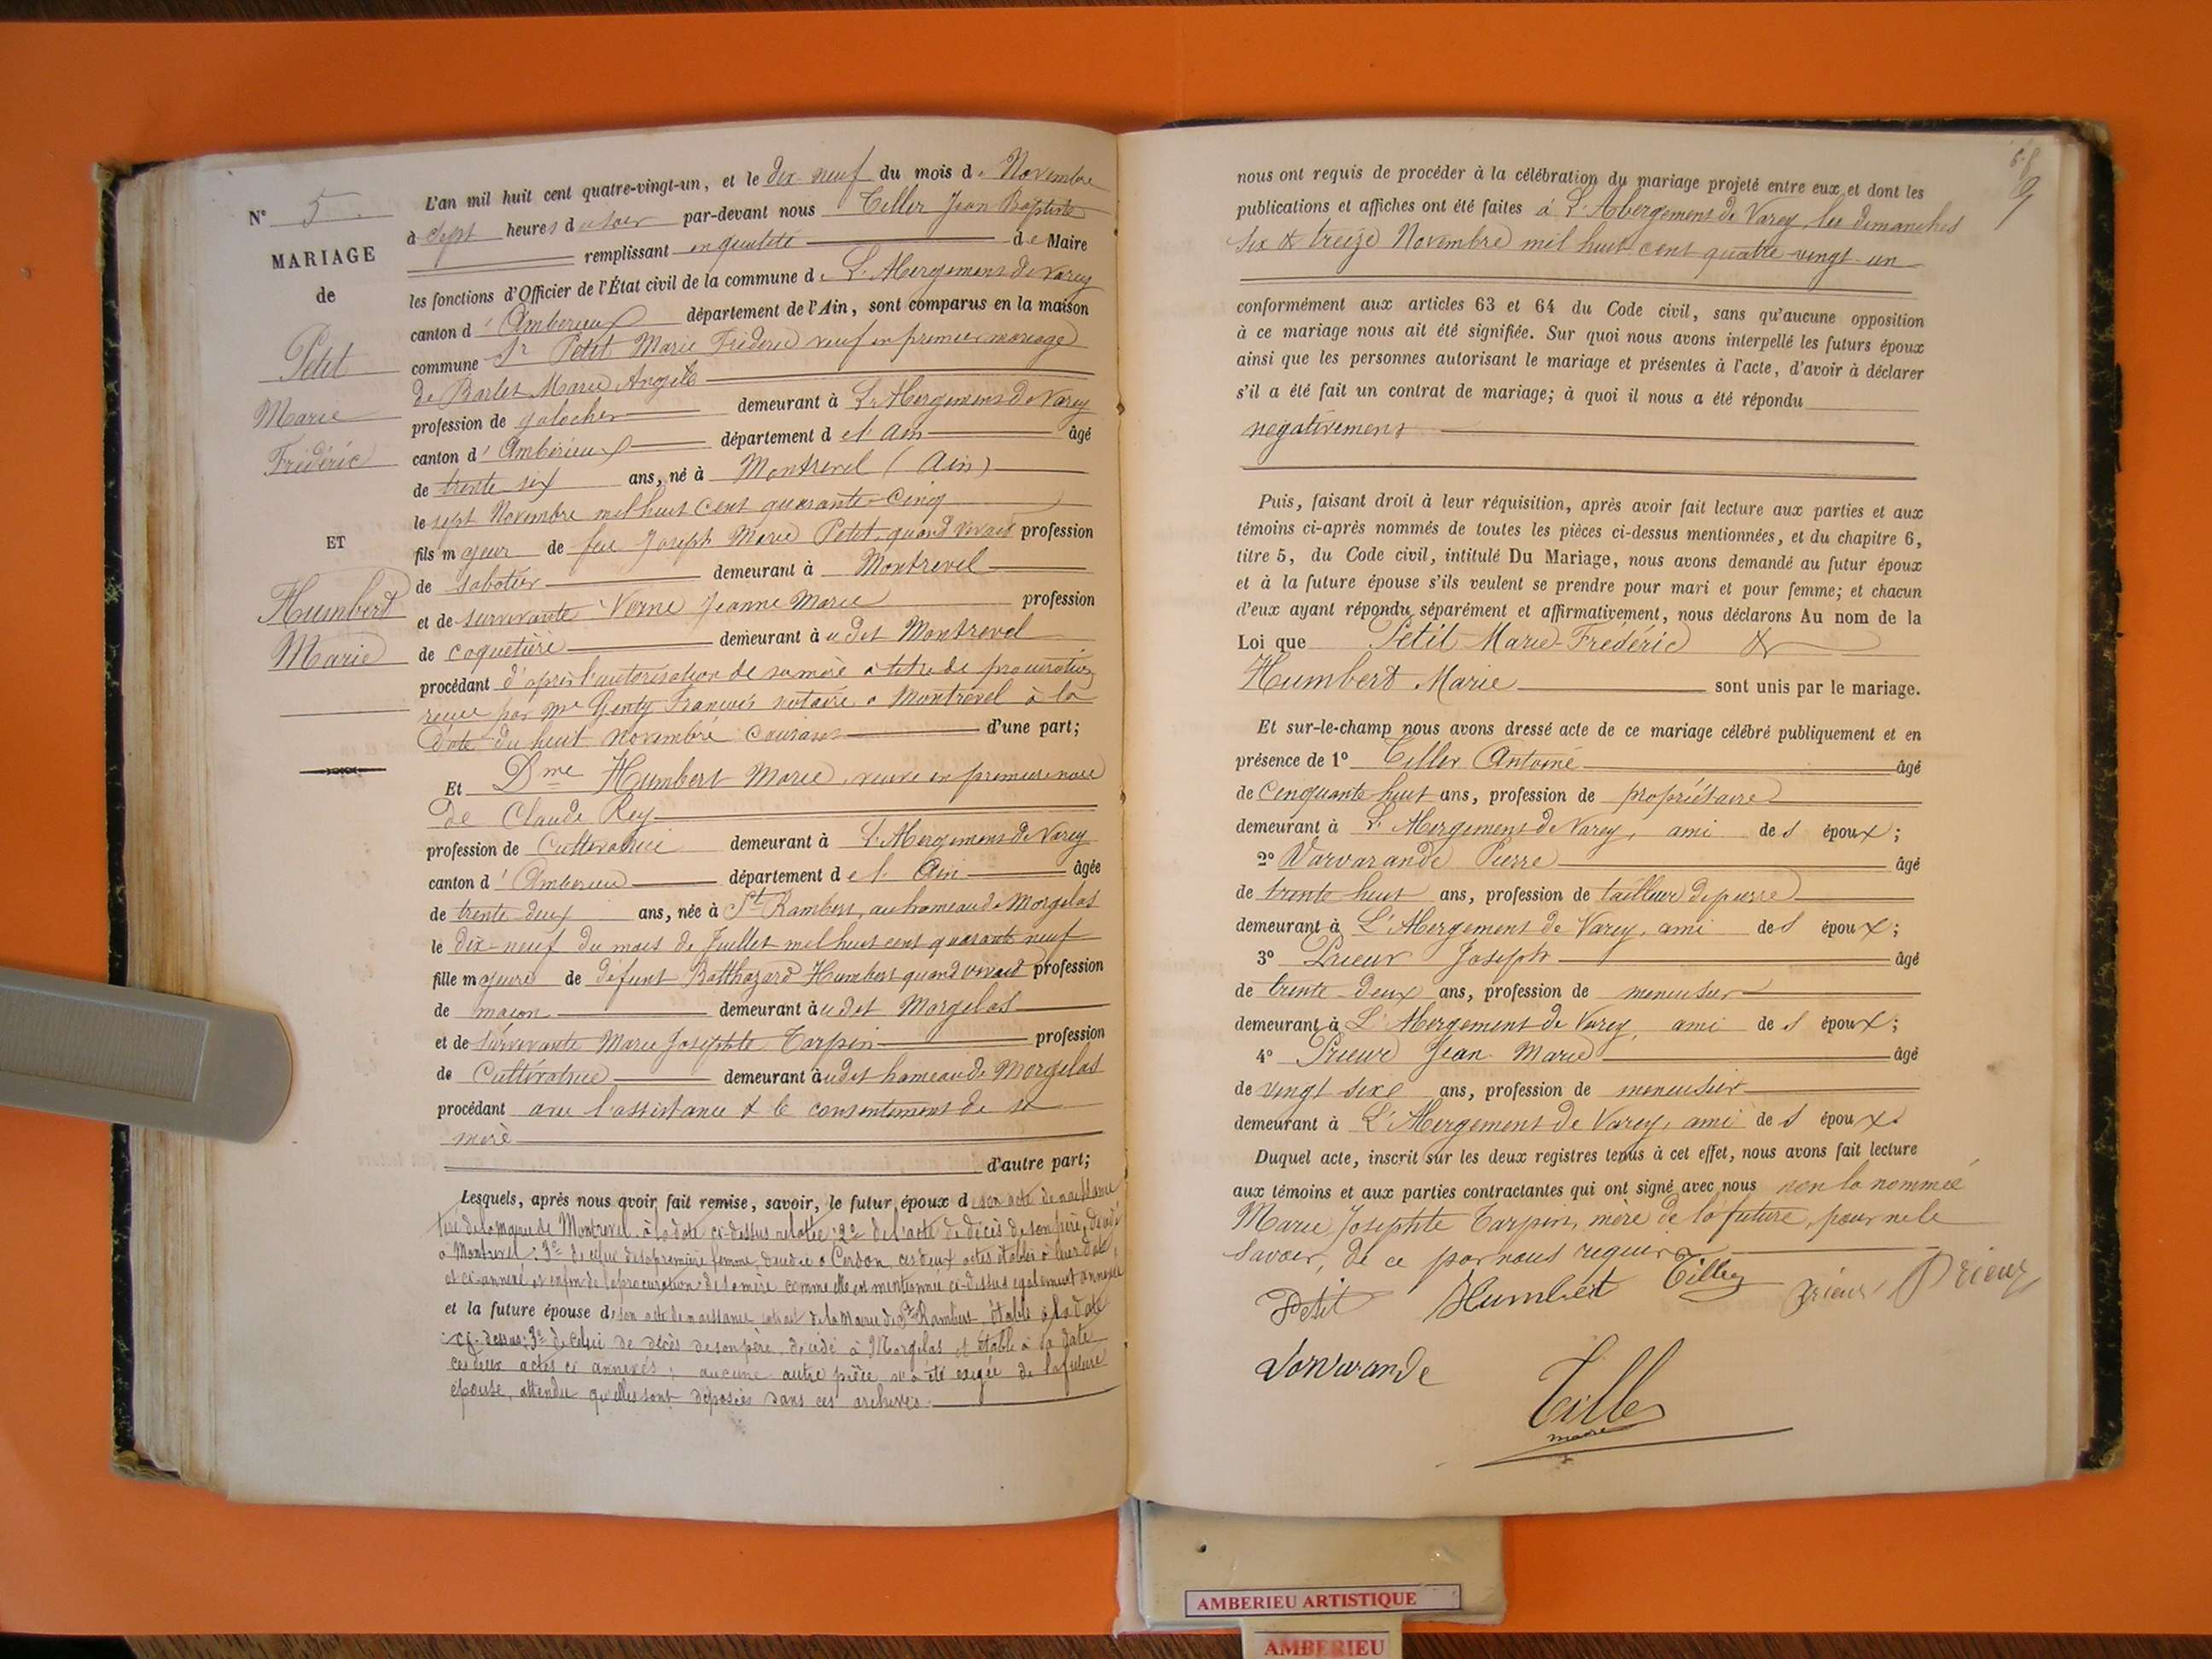 N° 5
MARIAGE
de
Petit
Marie
Frédéric
ET
Humbert
Marie
L'an mil huit cent quatre-vingt-un, et le dix-neuf du mois de Novembre
à sept heures du soir par-devant nous Tiller Jean Baptiste
remplissant en qualité de Maire
les fonctions d'Officier de l'État civil de la commune de L'Abergement de Varey
canton d'Ambérieux département de l'Ain, sont comparus en la maison
commune Sr Petit Marie Fréderic veuf en premier mariage
de Barlet Marie Angèle
profession de galocher demeurant à L'Abergement de Varey
canton d'Ambérieux département de l'Ain âgé
de trente six ans, né à Montrevel (Ain)
le sept Novembre mil huit cent quarante-cinq
fils majeur de feu Joseph Marie Petit, quand vivait profession
de sabotier demeurant à Montrevel
et de survivante Verne Jeanne Marie profession
de coquetière demeurant à udit Montrevel
procédant d'après l'autorisation de sa mère à titre de procuration
reçue par Me Genty François notaire à Montrevel à la
date du huit Novembre courant d'une part;
Et Dme Humbert Marie, veuve en premières noces
de Claude Rey
profession de Cultivatrice demeurant à L'Abergement de Varey
canton d'Amberieu département de l'Ain âgée
de trente-deux ans, née à St Rambert, au hameau de Morgelas
le dix-neuf du mois de Juillet mil huit cent quarante neuf
fille majeure de défunt Balthazard Humbert quand vivait profession
de maçon demeurant à udit Morgelas
et de survivante Marie Josephte Tarpin profession
de Cultivatrice demeurant audit hameau de Morgelas
procédant avec l'assistance & le consentement de sa
mère
d'autre part;
Lesquels, après nous avoir fait remise, savoir, le futur époux de son acte de naissance
tiré de la mairie de Montrevel, à la date ci-dessus relatée; 2° de l'acte de décès de son père, décédé
à Montrevel; 3° de celui de sa première femme, décédée à Cerdon, ces deux actes établis à leur date,
et ci-annexé, et enfin de la procuration de sa mère comme elle est mentionnée ci-dessus également annexée
et la future épouse de son acte de naissance extrait de la Mairie de St Rambert, établi à la date
ci-dessus; 2° de celui de décès de son père, décédé à Morgelas et établi à sa date
ces deux actes ci annexés; aucune autre pièce n'a été exigée de la future
épouse, attendu qu'elles sont déposées dans ces archives.
9
nous ont requis de procéder à la célébration du mariage projeté entre eux et dont les
publications et affiches ont été faites à L'Abergement de Varey, les dimanches
six & treize Novembre mil huit cent quatre-vingt-un
conformément aux articles 63 et 64 du Code civil, sans qu'aucune opposition
à ce mariage nous ait été signifiée. Sur quoi nous avons interpellé les futurs époux
ainsi que les personnes autorisant le mariage et présentes à l'acte, d'avoir à déclarer
s'il a été fait un contrat de mariage; à quoi il nous a été répondu
négativement
Puis, faisant droit à leur réquisition, après avoir fait lecture aux parties et aux
témoins ci-après nommés de toutes les pièces ci-dessus mentionnées, et du chapitre 6,
titre 5, du Code civil, intitulé Du Mariage, nous avons demandé au futur époux
et à la future épouse s'ils veulent se prendre pour mari et pour femme; et chacun
d'eux ayant répondu séparément et affirmativement, nous déclarons Au nom de la
Loi que Petit Marie-Frédéric &
Humbert Marie sont unis par le mariage.
Et sur-le-champ nous avons dressé acte de ce mariage célébré publiquement et en
présence de 1° Tiller Antoine âgé
de Cinquante huit ans, profession de propriétaire
demeurant à L'Abergement de Varey, ami des époux;
2° Varvarande Pierre âgé
de trente huit ans, profession de tailleur de pierre
demeurant à L'Abergement de Varey, ami des époux;
3° Prieur Joseph âgé
de trente-deux ans, profession de menuisier
demeurant à L'Abergement de Varey, ami des époux;
4° Prieur Jean Marie âgé
de vingt sixe ans, profession de menuisier
demeurant à L'Abergement de Varey, ami des époux.
Duquel acte, inscrit sur les deux registres tenus à cet effet, nous avons fait lecture
aux témoins et aux parties contractantes qui ont signé avec nous non la nommée
Marie Josephte Tarpin, mère de la future, pour ne le
savoir, de ce par nous requise
Petit Humbert Tiller Prieur Prieur
Varvarande
Tiller
maire
AMBERIEU ARTISTIQUE
AMBERIEU